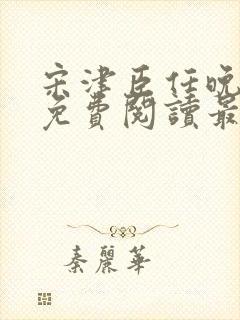 宋津臣任晚
免費閱讀最
秦麗華